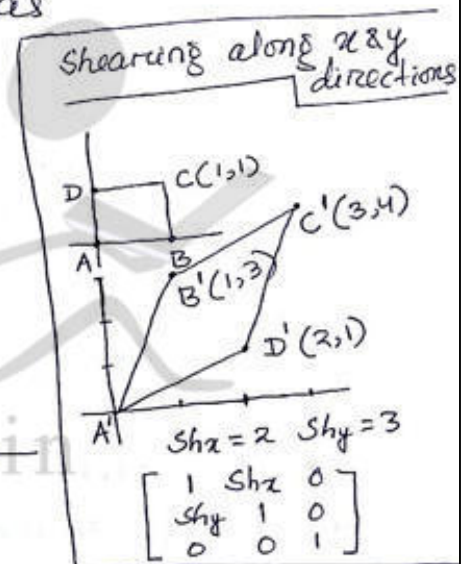 Shearing along x & y
directions
D
C(1,1)
A
B
C'(3,4)
B'(1,3)
D'(2,1)
A'
Shx = 2 Shy = 3
1 Shx 0
Shy 1 0
0 0 1